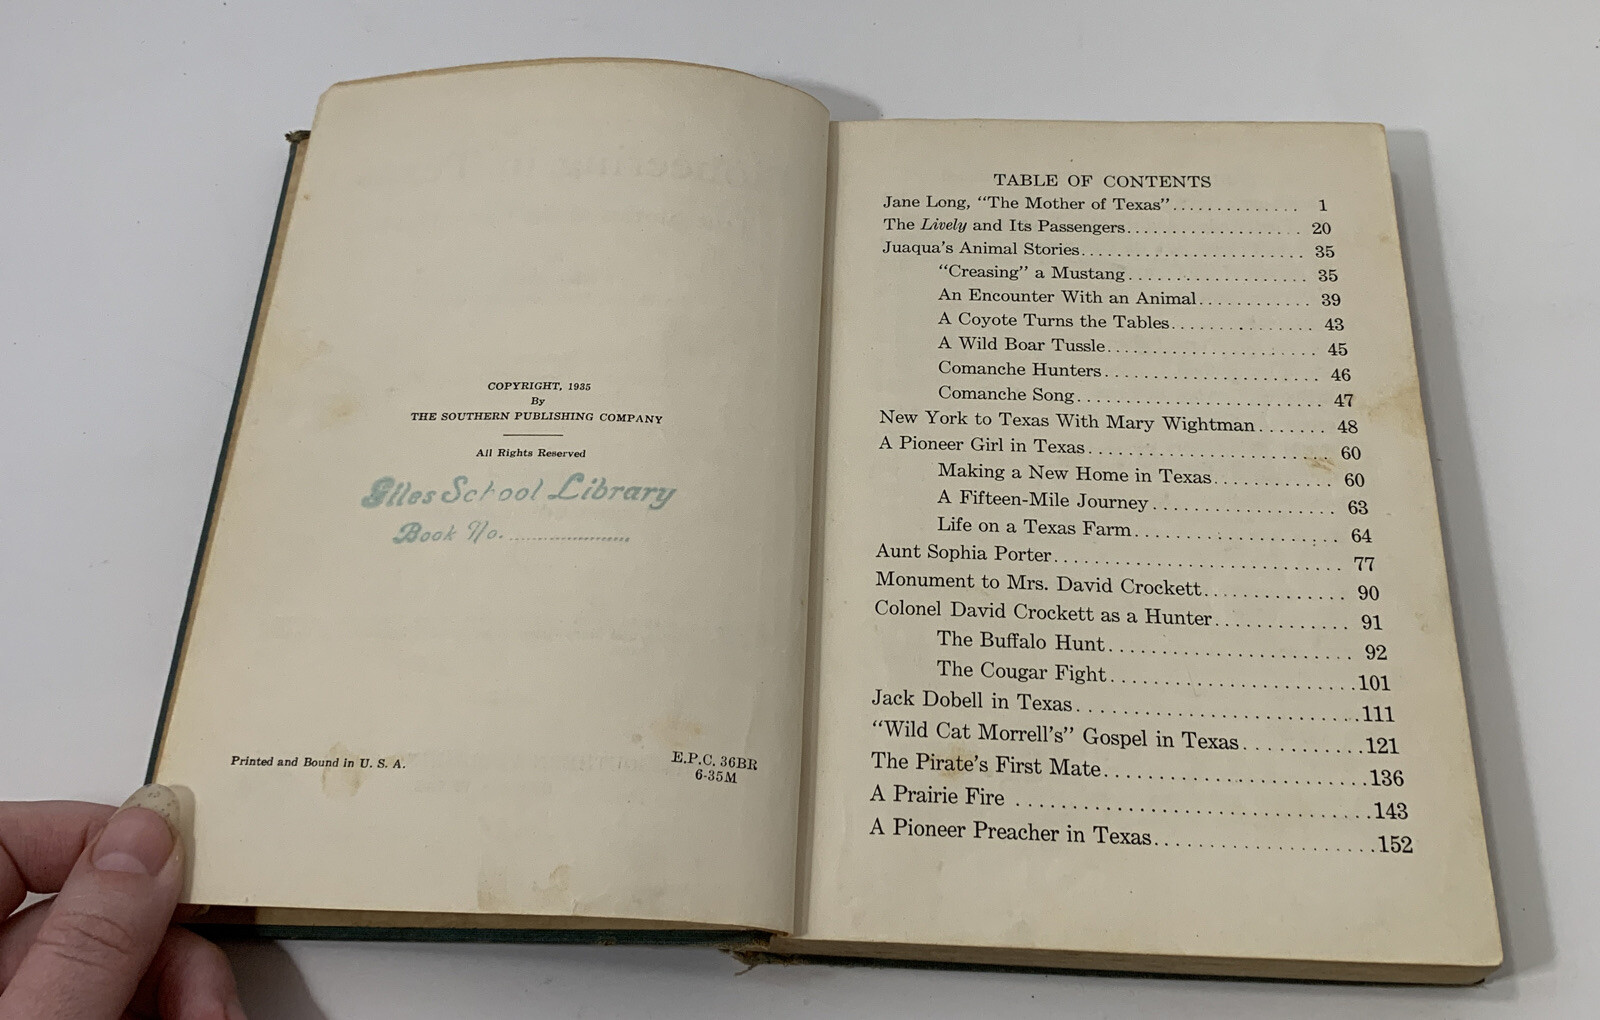 COPYRIGHT, 1935
By
THE SOUTHERN PUBLISHING COMPANY
All Rights Reserved
Giles School Library
Book No. ....................
Printed and Bound in U. S. A.
E.P.C. 36BR
6-35M
TABLE OF CONTENTS
Jane Long, “The Mother of Texas”.............. 1
The Lively and Its Passengers................... 20
Juaqua's Animal Stories........................ 35
“Creasing” a Mustang................... 35
An Encounter With an Animal............ 39
A Coyote Turns the Tables............... 43
A Wild Boar Tussle...................... 45
Comanche Hunters....................... 46
Comanche Song.......................... 47
New York to Texas With Mary Wightman....... 48
A Pioneer Girl in Texas......................... 60
Making a New Home in Texas............ 60
A Fifteen-Mile Journey................... 63
Life on a Texas Farm.................... 64
Aunt Sophia Porter............................ 77
Monument to Mrs. David Crockett.............. 90
Colonel David Crockett as a Hunter............. 91
The Buffalo Hunt....................... 92
The Cougar Fight.......................101
Jack Dobell in Texas...........................111
“Wild Cat Morrell's” Gospel in Texas............121
The Pirate's First Mate........................136
A Prairie Fire ................................143
A Pioneer Preacher in Texas....................152